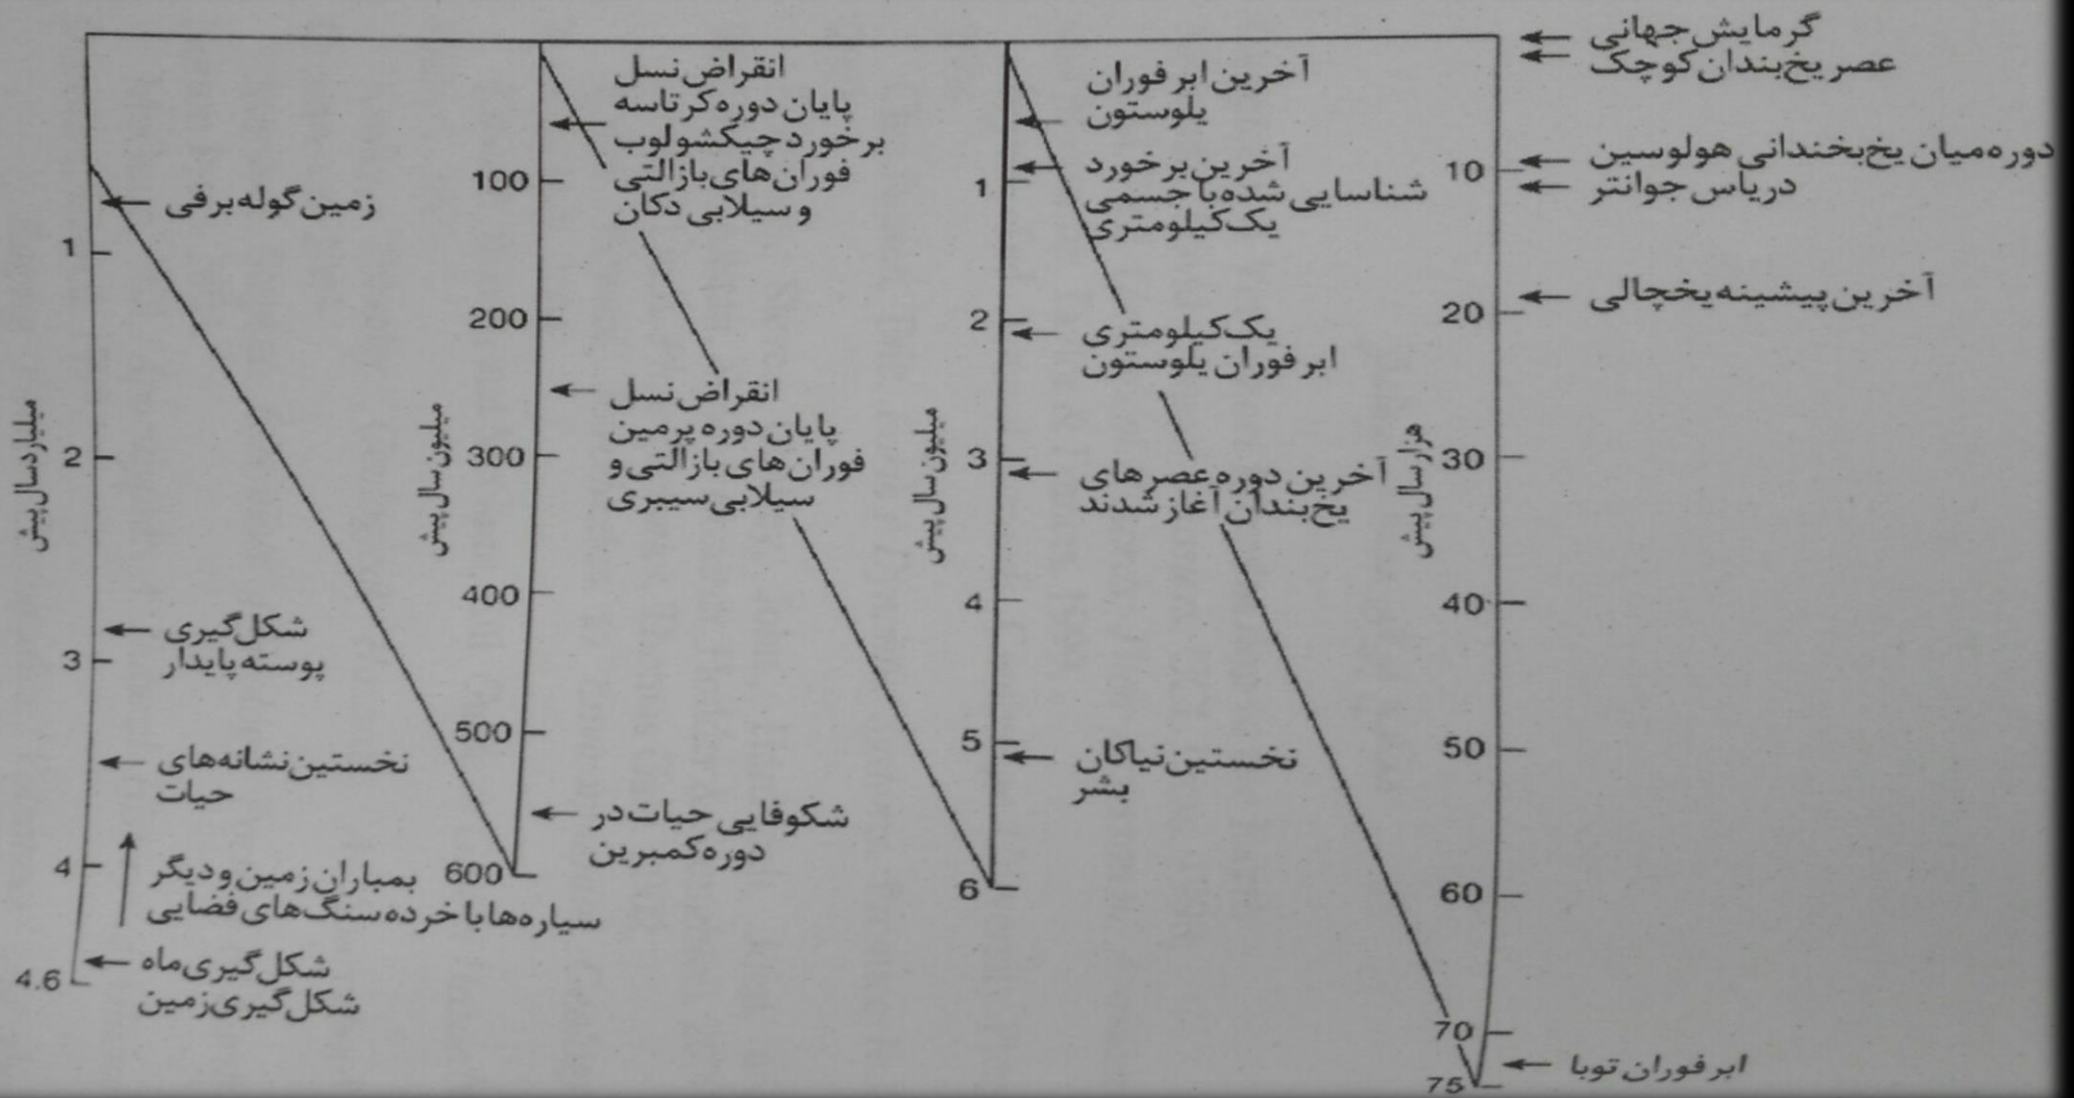 میلیارد سال پیش
1
2
3
4
4.6
زمین گوله برفی
شکل‌گیری
پوسته پایدار
نخستین نشانه‌های
حیات
بمباران زمین و دیگر
سیاره‌ها با خرده سنگ‌های فضایی
شکل‌گیری ماه
شکل‌گیری زمین
میلیون سال پیش
100
200
300
400
500
600
انقراض نسل
پایان دوره کرتاسه
برخورد چیکشولوب
فوران‌های بازالتی
و سیلابی دکان
انقراض نسل
پایان دوره پرمین
فوران‌های بازالتی و
سیلابی سیبری
شکوفایی حیات در
دوره کمبرین
میلیون سال پیش
1
2
3
4
5
6
آخرین ابر فوران
یلوستون
آخرین برخورد
شناسایی شده با جسمی
یک کیلومتری
یک کیلومتری
ابر فوران یلوستون
آخرین دوره عصرهای
یخ‌بندان آغاز شدند
نخستین نیاکان
بشر
هزار سال پیش
10
20
30
40
50
60
70
75
گرمایش جهانی
عصر یخ‌بندان کوچک
دوره میان یخ‌بخندانی هولوسین
دریاس جوانتر
آخرین پیشینه یخچالی
ابر فوران توبا